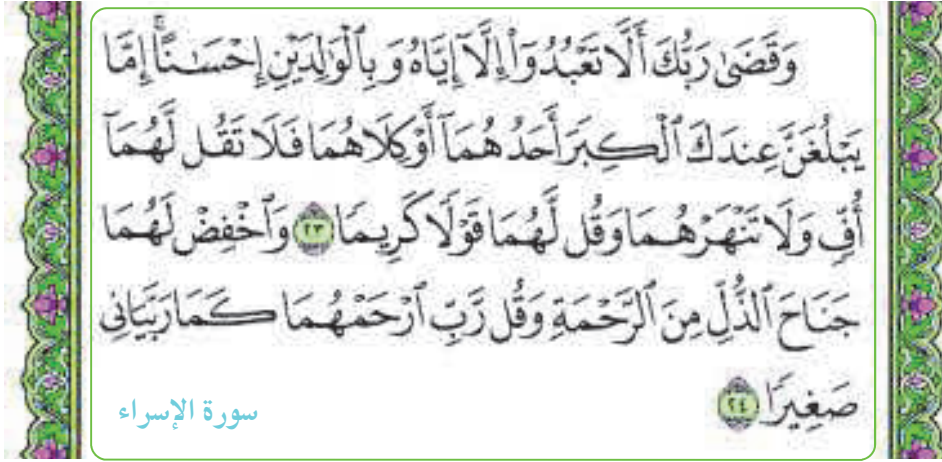 وَقَضَىٰ رَبُّكَ أَلَّا تَعْبُدُوٓا۟ إِلَّآ إِيَّاهُ وَبِٱلْوَٰلِدَيْنِ إِحْسَـٰنًا ۚ إِمَّا
يَبْلُغَنَّ عِندَكَ ٱلْكِبَرَ أَحَدُهُمَآ أَوْ كِلَاهُمَا فَلَا تَقُل لَّهُمَآ
أُفٍّ وَلَا تَنْهَرْهُمَا وَقُل لَّهُمَا قَوْلًا كَرِيمًا ٢٣ وَٱخْفِضْ لَهُمَا
جَنَاحَ ٱلذُّلِّ مِنَ ٱلرَّحْمَةِ وَقُل رَّبِّ ٱرْحَمْهُمَا كَمَا رَبَّيَانِى
صَغِيرًا ٢٤
سورة الإسراء